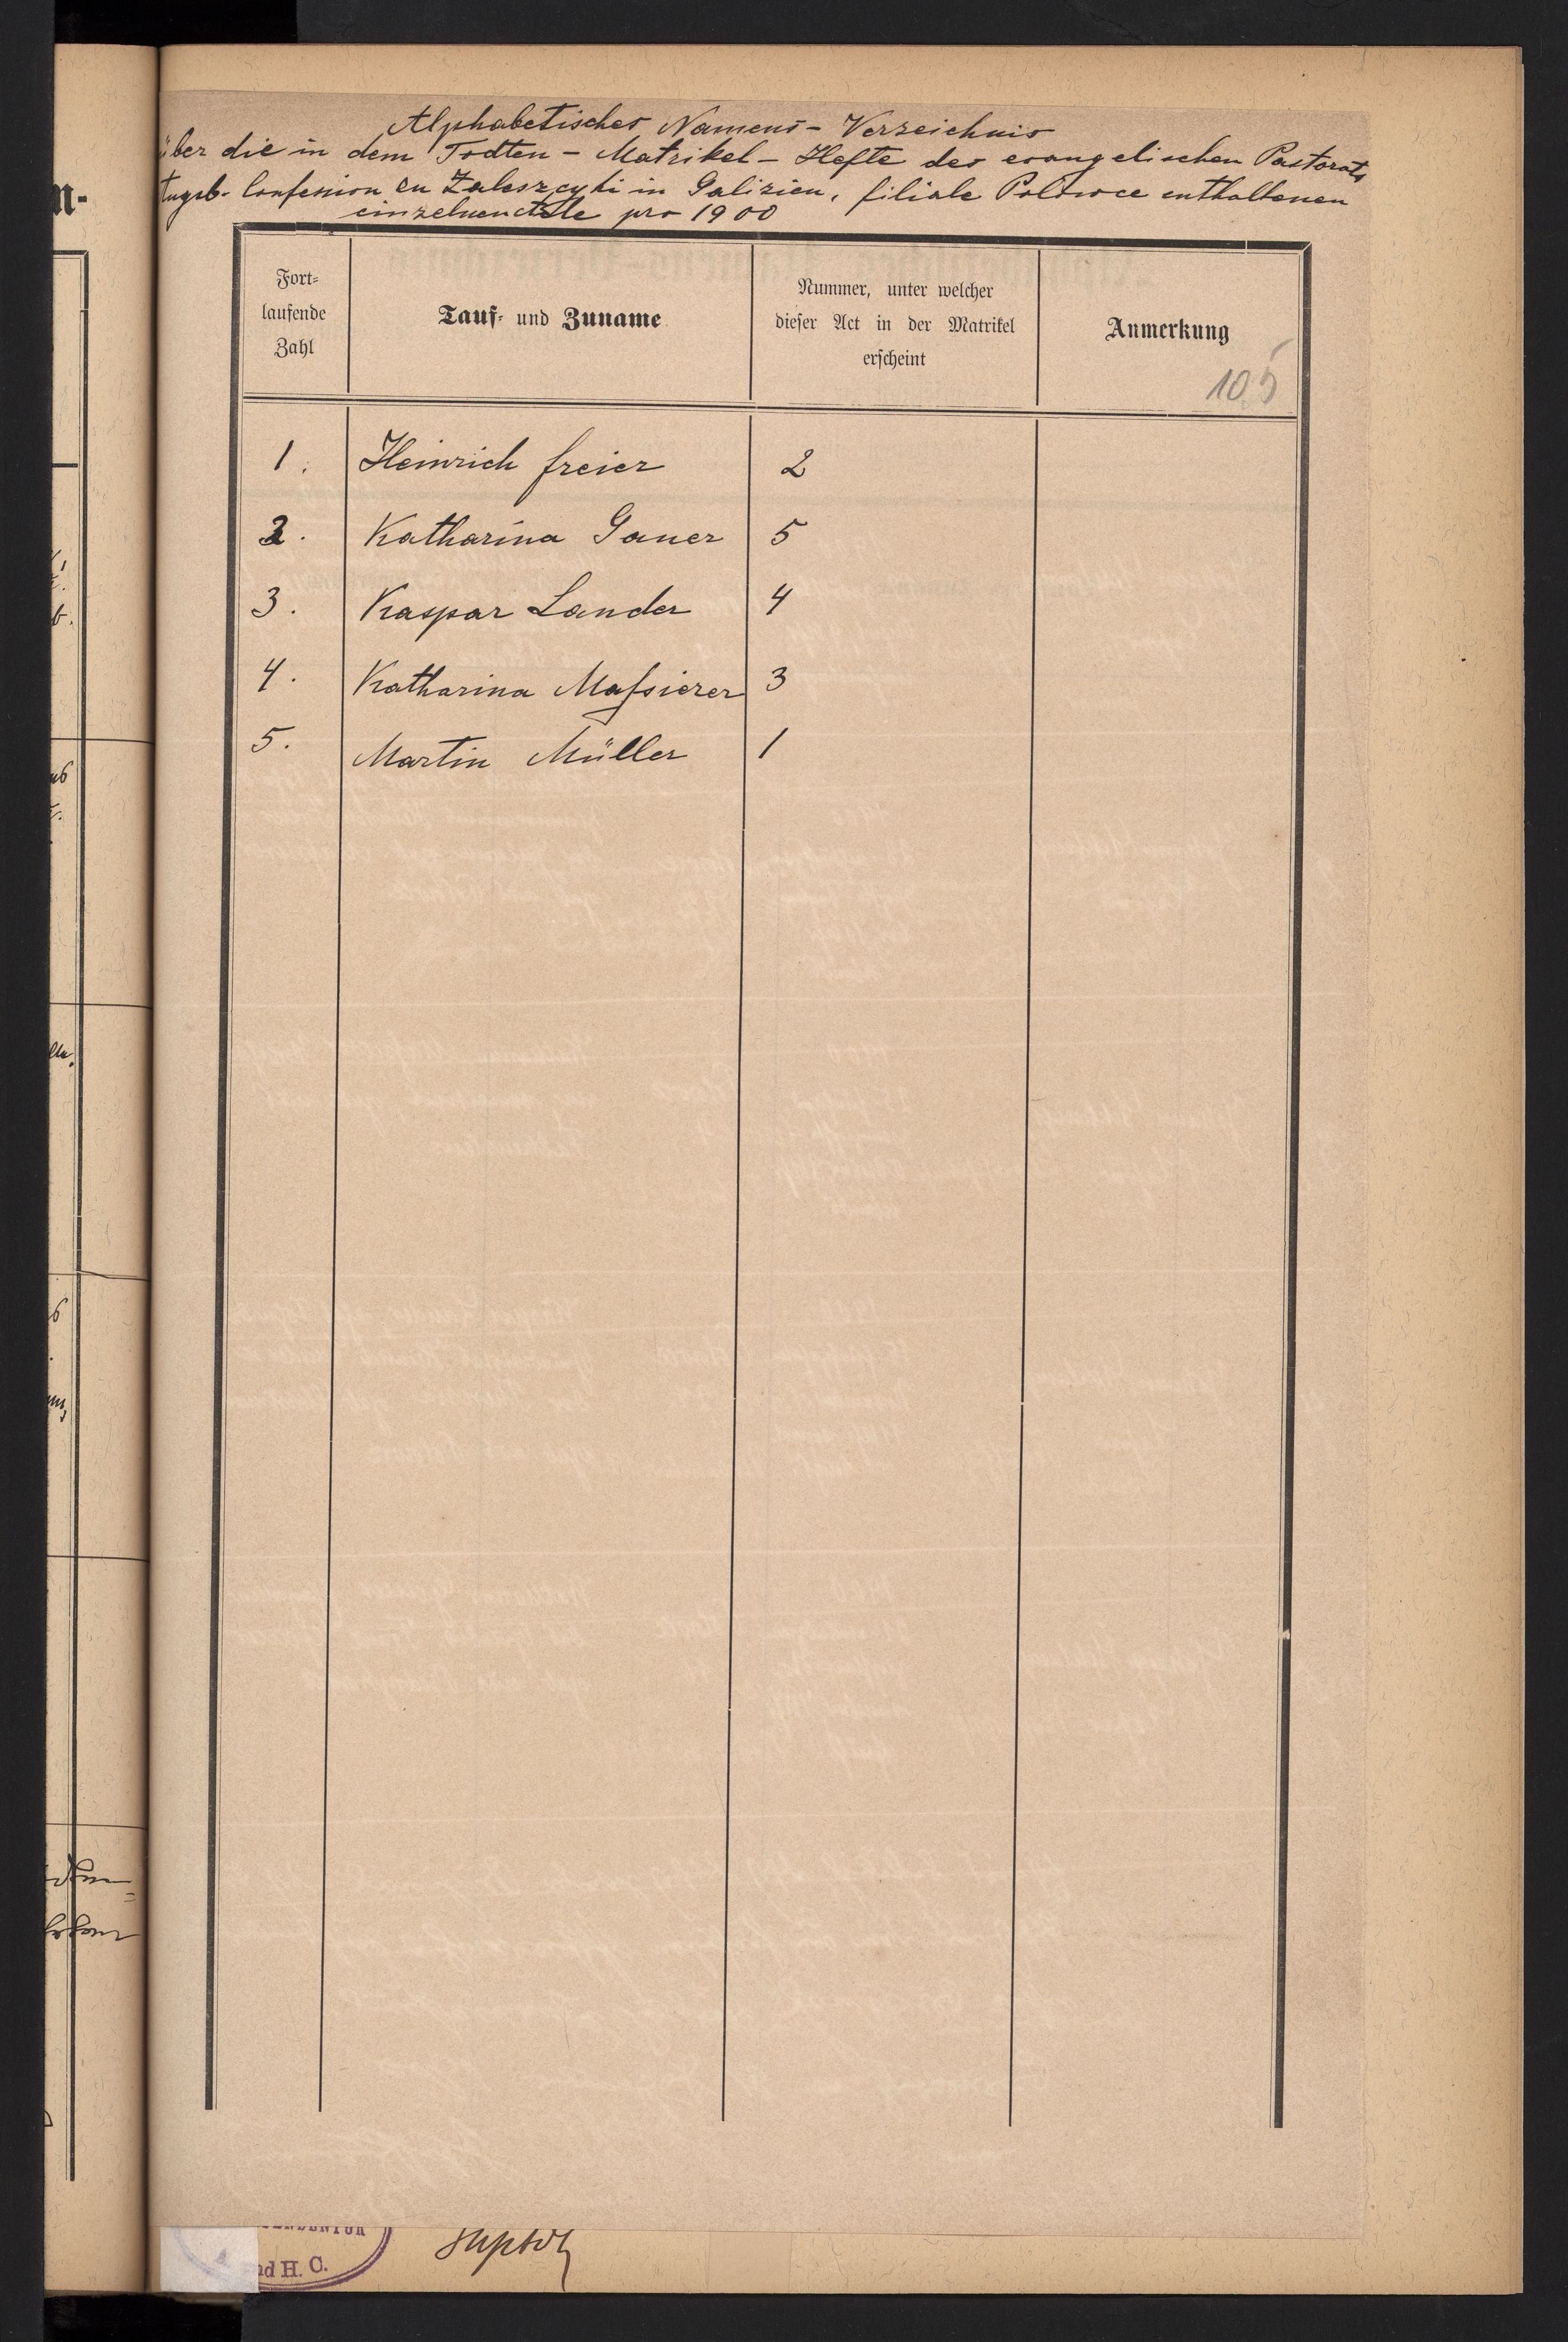 Alphabetisches Namens-Verzeichnis
über die in dem Todten-Matrikel-Hefte des evangelischen Pastorats
Augsb. Confession zu Zaleszcyki in Galizien, filiale Polowce enthaltenen
einzelnen Akte pro 1900
Fort-
laufende
Zahl
Tauf- und Zuname
Nummer, unter welcher
dieser Act in der Matrikel
erscheint
Anmerkung
105
1. Heinrich freier 2
2. Katharina Gauer 5
3. Kaspar Lander 4
4. Katharina Maſsierer 3
5. Martin Müller 1
nd H. C.